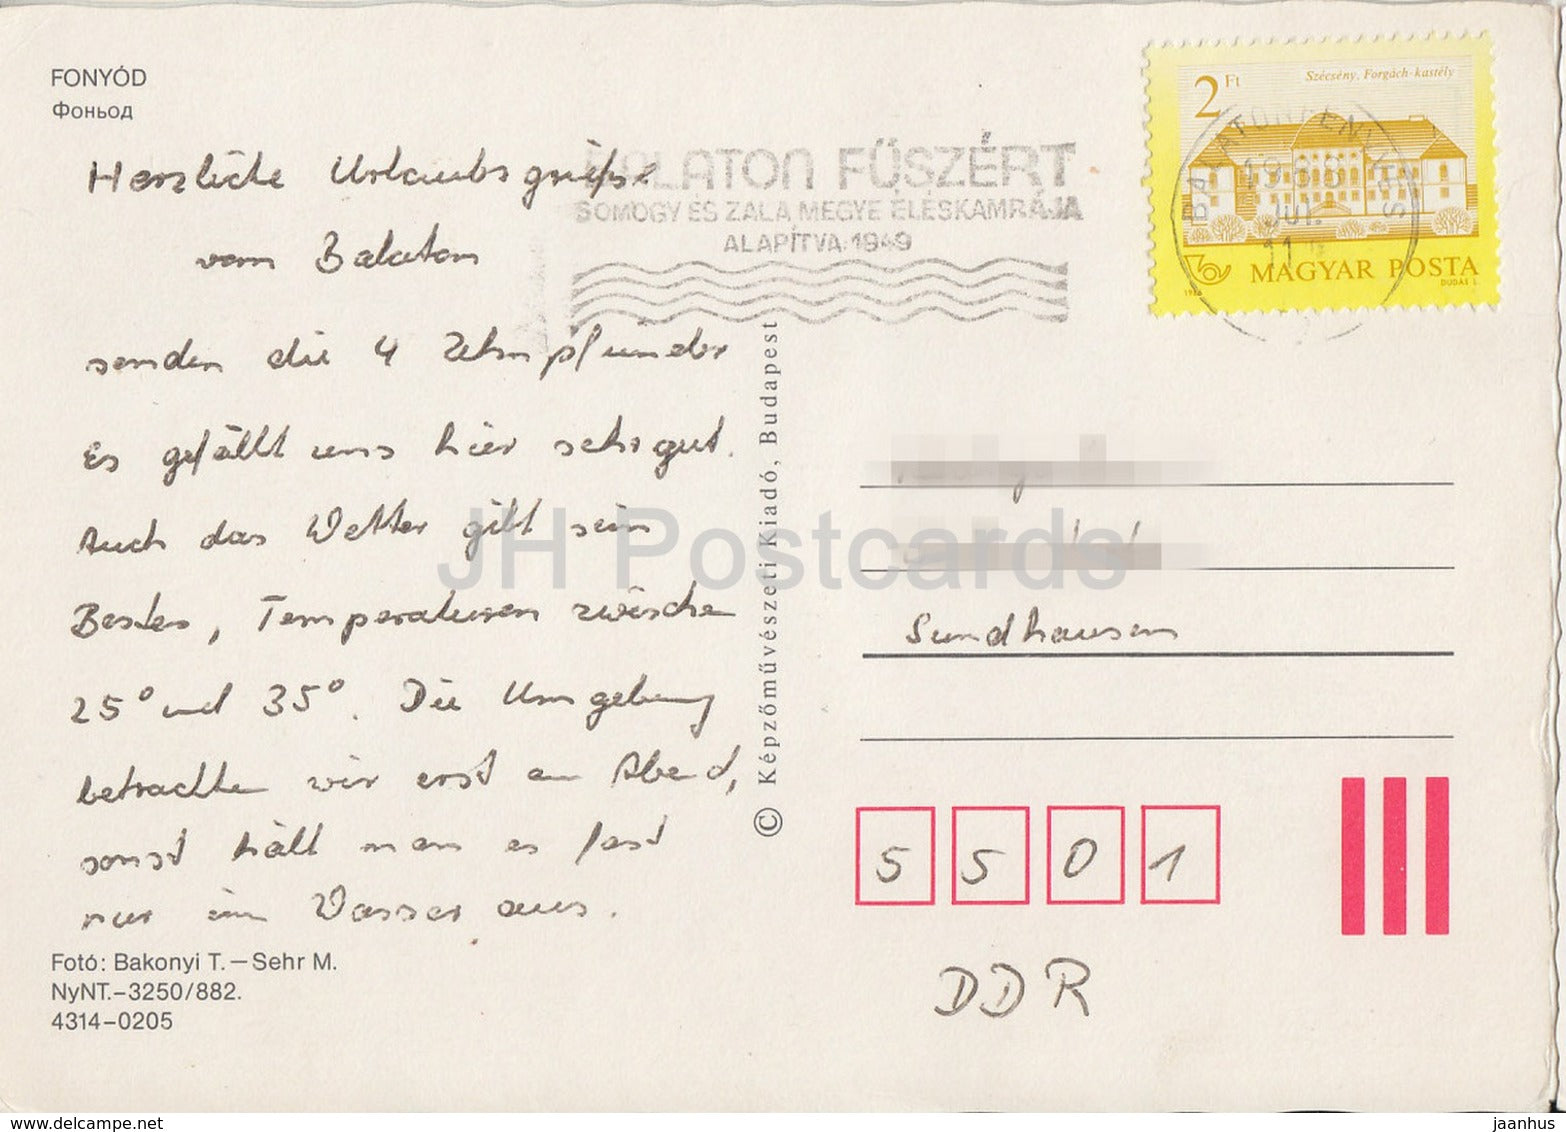 FONYÓD
Фоньод
Herzliche Urlaubsgrüße
vom Balaton
senden die 4 Zehnpfünder
Es gefällt uns hier sehr gut.
Auch das Wetter gibt sein
Bestes, Temperaturen zwische
25° und 35°. Die Umgebung
betrachten wir erst am Abend,
sonst hält man es fast
nur im Wasser aus.
Fotó: Bakonyi T. – Sehr M.
NyNT.–3250/882.
4314–0205
BALATON FŰSZÉRT
SOMOGY ÉS ZALA MEGYE ÉLÉSKAMRÁJA
ALAPÍTVA: 1949
© Képzőművészeti Kiadó, Budapest
2 Ft
Szécsény, Forgách-kastély
MAGYAR POSTA
DUDÁS L.
1986
Sundhausen
5 5 0 1
DDR
JH Postcards
delcampe.net
jaanhus